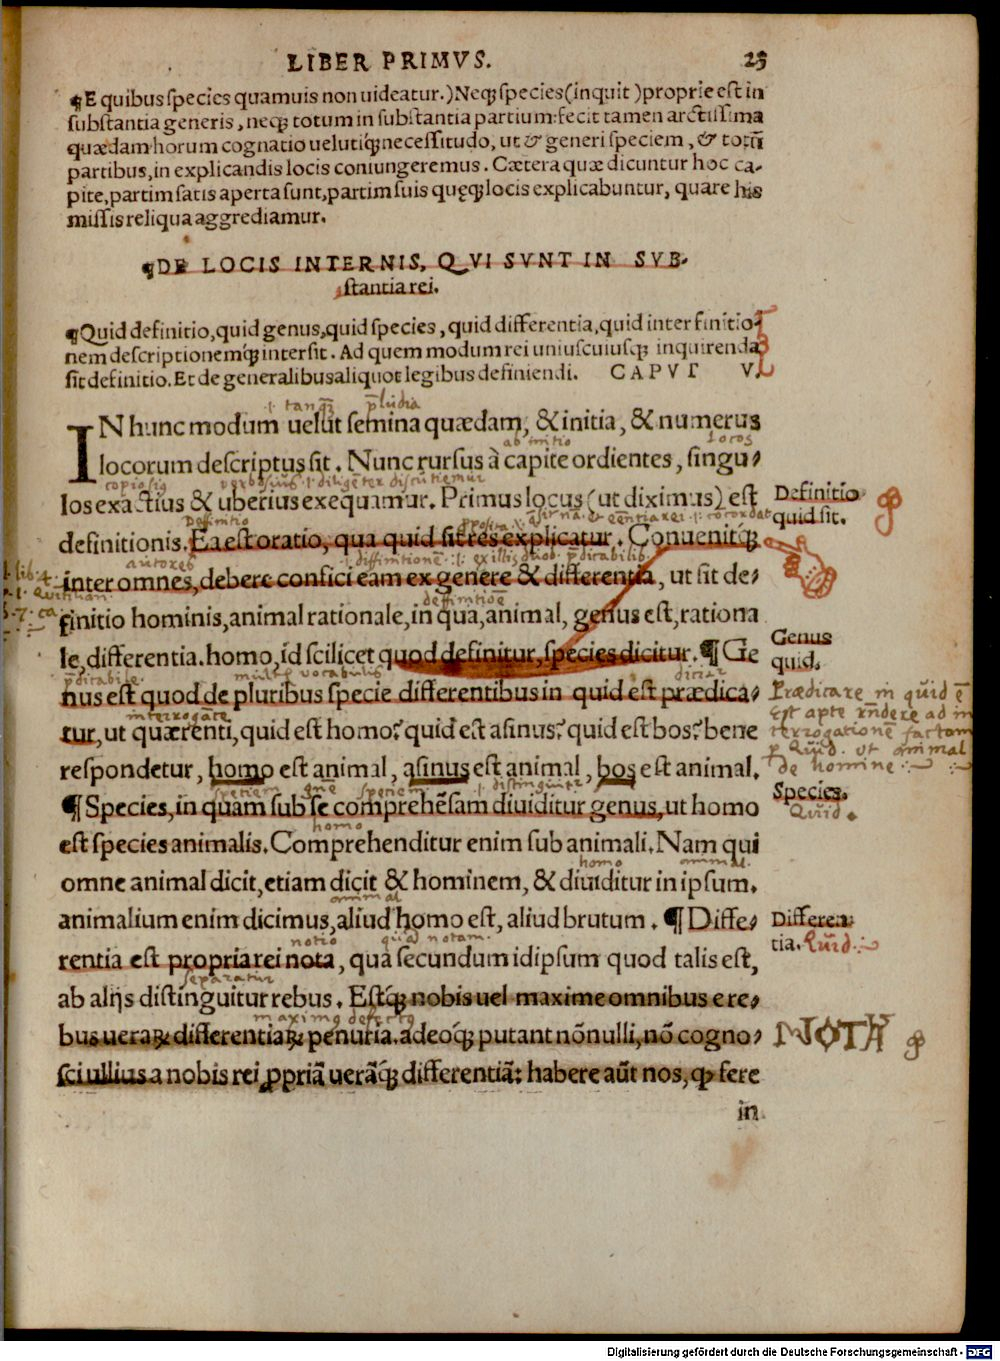 LIBER PRIMVS. 25
¶E quibus species quamuis non uideatur.) Neqꝫ species (inquit) proprie est in
substantia generis, neqꝫ totum in substantia partium: fecit tamen arctissima
quædam horum cognatio uelutiqꝫ́ necessitudo, ut & generi speciem, & totũ
partibus, in explicandis locis coniungeremus. Cætera quæ dicuntur hoc ca-
pite, partim satis aperta sunt, partim suis quęqꝫ locis explicabuntur, quare his
missis reliqua aggrediamur.
¶DE LOCIS INTERNIS, QVI SVNT IN SVB-
stantia rei.
¶Quid definitio, quid genus, quid species, quid differentia, quid inter finitio-
nem descriptionemqꝫ́ intersit. Ad quem modum rei uniuscuiusqꝫ inquirenda
sit definitio. Et de generalibus aliquot legibus definiendi. CAPVT V.
tanqꝫ̃ p̃ludia
IN hunc modum uelut semina quædam, & initia, & numerus
ab initio locos
locorum descriptus sit. Nunc rursus à capite ordientes, singu-
copiosiꝰ verbosiꝰ .i. diligẽter discutiemur
los exactius & uberius exequamur. Primus locus (ut diximus) est
Definitio
quid sit.
Deffinitio
definitionis. Ea est oratio, qua quid sit res explicatur. Conuenitqꝫ́
autores diffinitionẽ
inter omnes, debere confici eam ex genere & differentia, ut sit de-
deffinitiõẽ
finitio hominis, animal rationale, in qua, animal, genus est, rationa
Genus
quid.
le, differentia. homo, id scilicet quod definitur, species dicitur. ¶Ge
p̃dicabile vocabulis dicitur
nus est quod de pluribus specie differentibus in quid est prædica-
Prædicare in quid ẽ
Est apte rñdere ad in
terrogationẽ factam
p Quid. ut animal
de homine
interrogãte
tur, ut quærenti, quid est homo? quid est asinus? quid est bos? bene
respondetur, homo est animal, asinus est animal, bos est animal.
Species.
Quid.
speciem speciem distinguitr
¶Species, in quam sub se comprehẽsam diuiditur genus, ut homo
homo
est species animalis. Comprehenditur enim sub animali. Nam qui
homo animal.
omne animal dicit, etiam dicit & hominem, & diuiditur in ipsum.
animal
animalium enim dicimus, aliud homo est, aliud brutum. ¶Diffe-
Differen-
tia. Quid.
notio notam.
rentia est propria rei nota, qua secundum id ipsum quod talis est,
separatur
ab alijs distinguitur rebus. Estqꝫ́ nobis uel maxime omnibus e re-
maximo defectu
bus ueraꝝ differentiaꝝ penuria. adeoqꝫ́ putant nõnulli, nõ cogno-
NOTA
sci ullius a nobis rei ꝓpriã uerãqꝫ́ differentiã: habere aũt nos, ꝙ fere
in
Digitalisierung gefördert durch die Deutsche Forschungsgemeinschaft - DFG